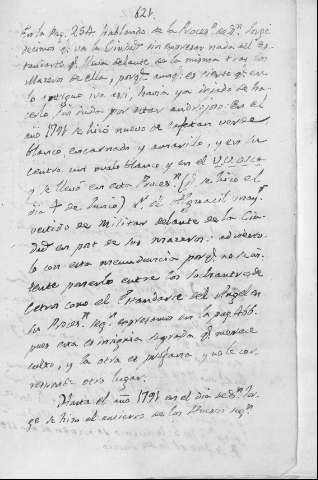 621.
En la Pag. 254 hablando de la Proces.n de S.n Jorge
decimos q.e va la Ciudad sin expresar nada del Es-
tandarte q.e lleva delante de la misma tras los
Maceros de ella, porq.e aunq.e es cierto q.e en
lo antiguo iva asi, havia ya dejado de ha-
cerlo sin duda por estar andrajoso. En el
año 1791 se hizo nuevo de tafetan verde
blanco, encarnado y amarillo, y en su
centro un ovalo blanco y en el V.V.Osca
y se llevó en esta Proces.n (q.e se hizo el
dia 4 de Junio) el Alguacil may.r
vestido de Militar delante de la Ciu-
dad en pos de sus maceros: advierto
lo con esta circunstancia porq.e no se in-
tente ponerlo entre los
como el Estandarte del Angel en
su Proces.n seg.n expresamos en la pag. 466.
pues esta es imagen sagrada q.e merece
culto, y la otra es profana, y no le cor-
responde otro lugar.
Hasta el año 1791 en el dia de S.n Jor-
ge se hizo el entierro de los Huesos seg.n